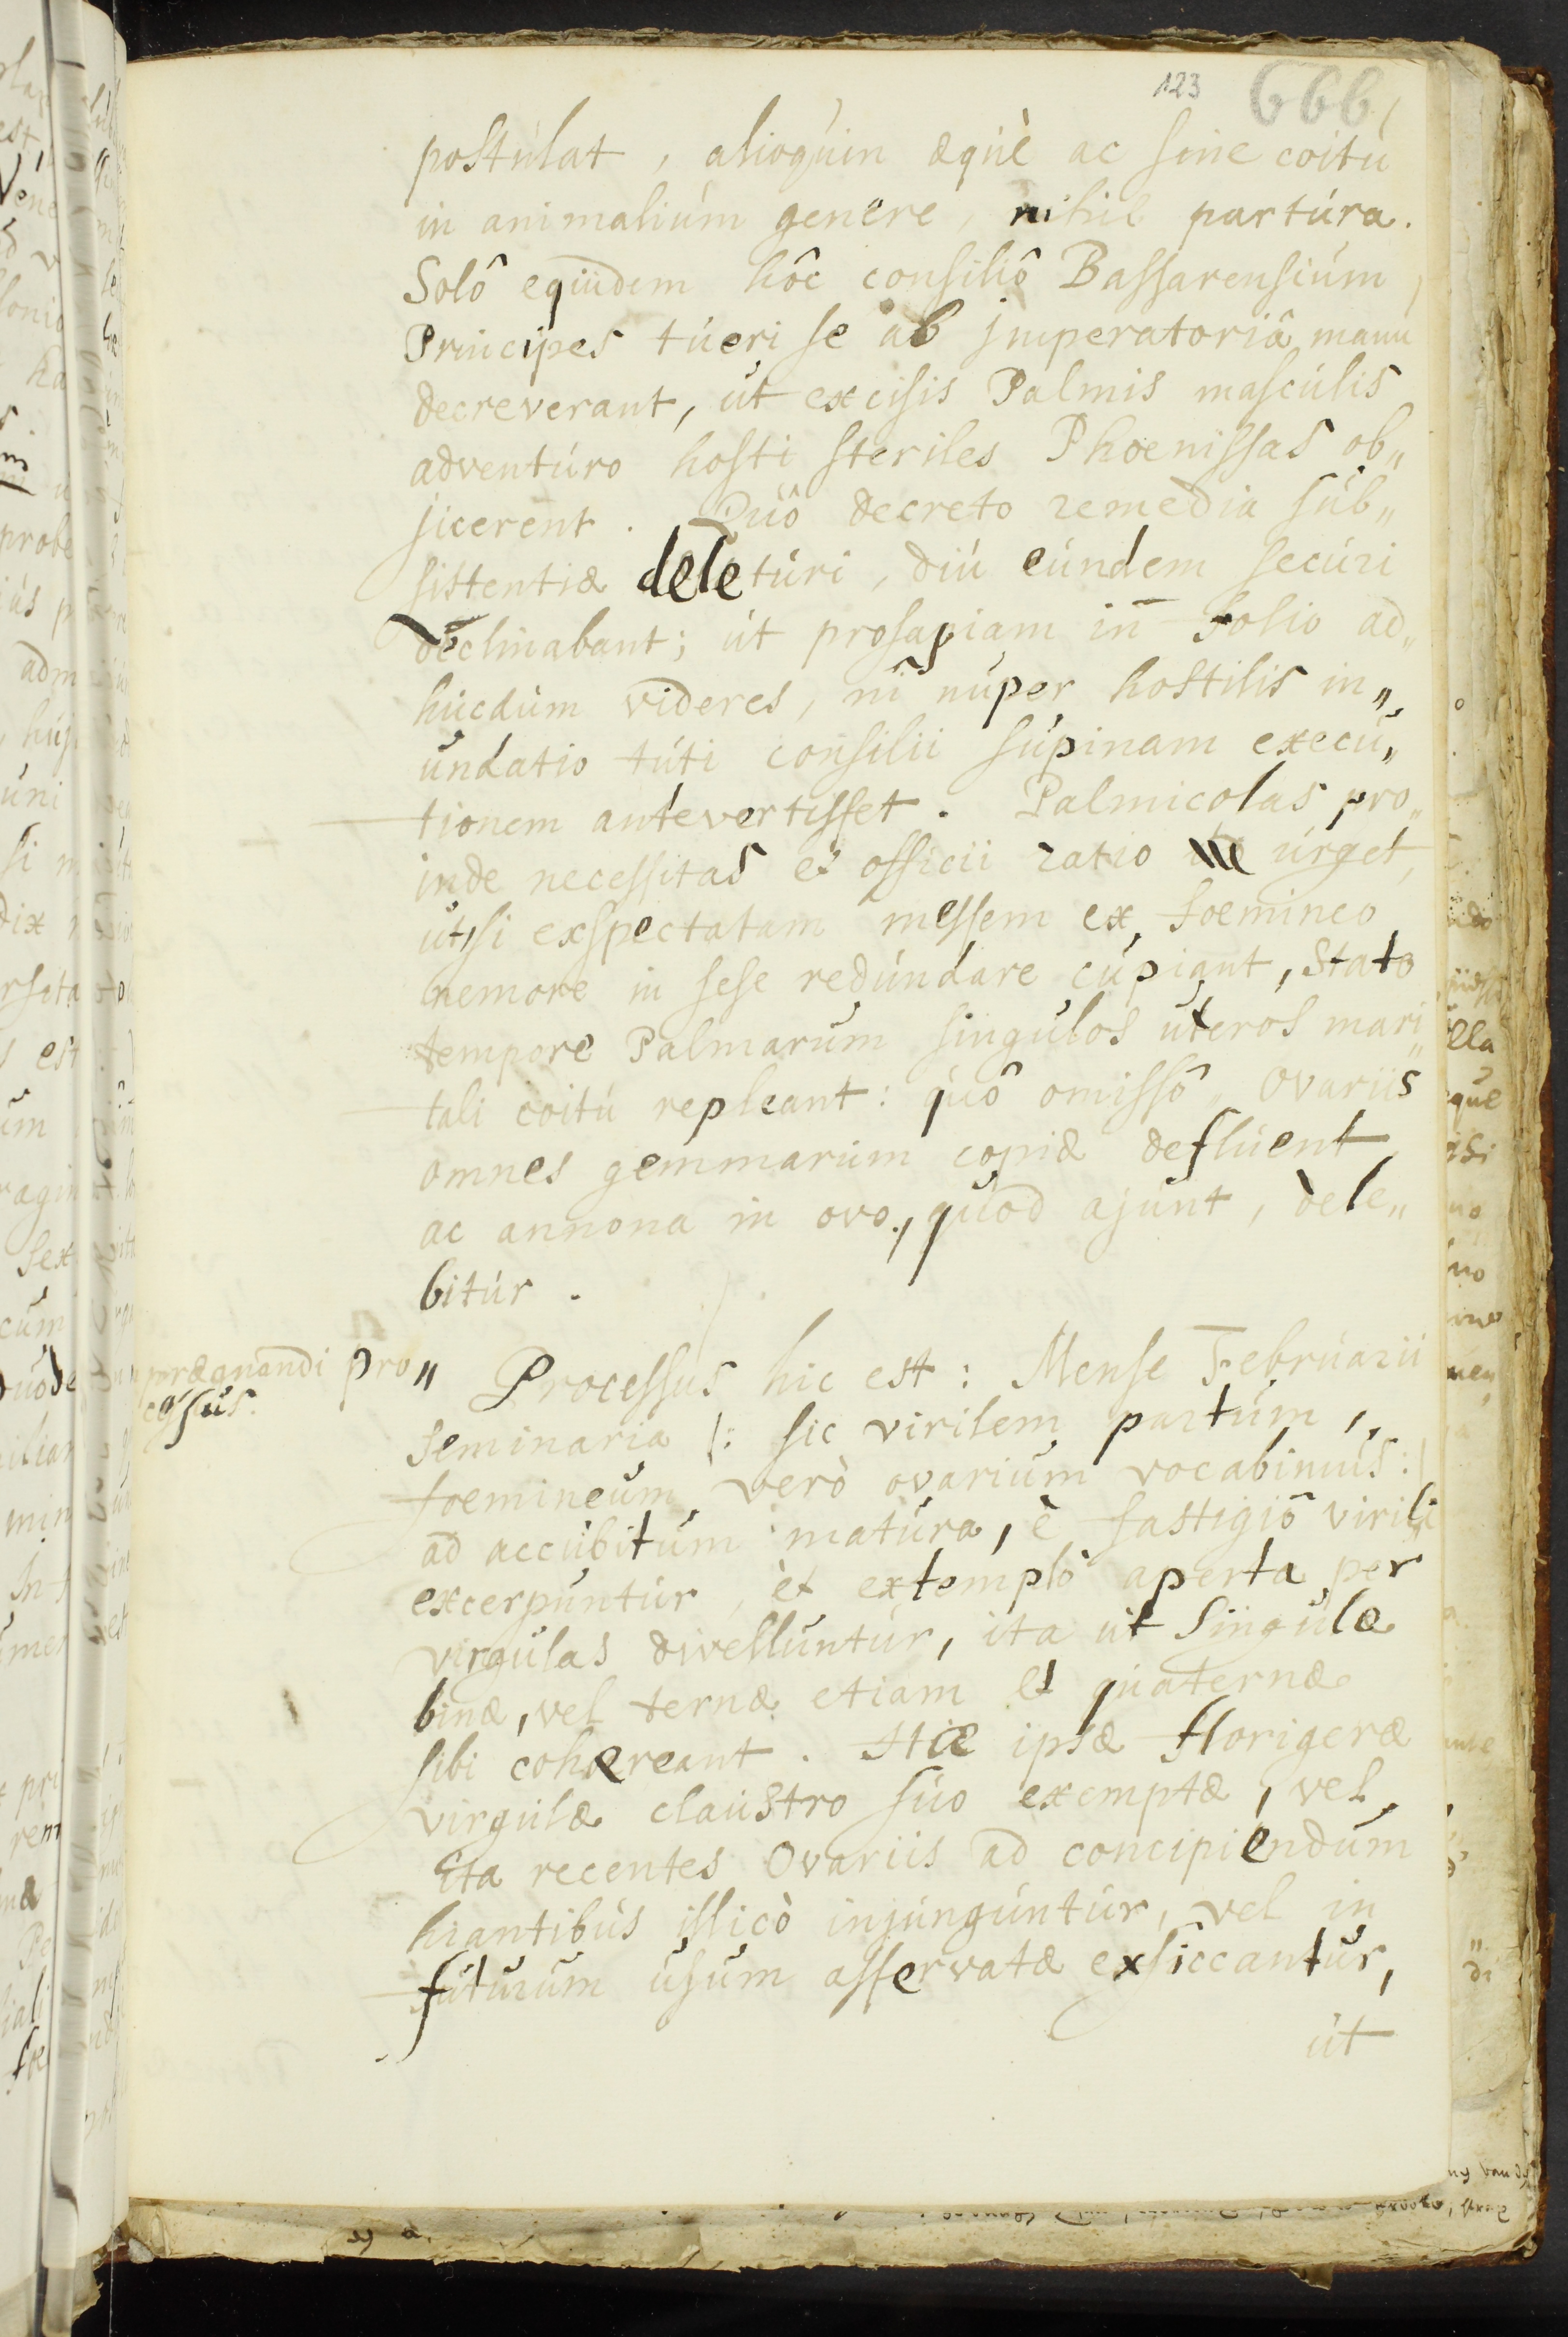 123 666
postúlat, alioquin æquè ac sine coitú
in animaliúm genere, nihil partúra.
Solô equidem hôc consiliô Bassarensiúm
Principes túeri se ab imperatoriâ manú
decreverant, út excisis Palmis mascúlis
adventúro hosti steriles Phoenissas ob„
jicerent. Quô decreto remedia súb„
sistentiæ deletúri, diú eúndem secúri
declinabant; út prosapiam in solio ad„
húcdúm videres, nî núper hostilis in„
úndatio túti consilii súpinam execú„
tionem antevertisset. Palmicolas pro„
inde necessitas et officii ratio úrget,
út, si exspectatam messem ex foemineo
nemore in sese redúndare cúpiant, stato
tempore Palmarúm singúlos úteros mari„
tali coitú repleant: qúô omissô, Ovariis
omnes gemmarúm copiæ deflúent
ac annona in ovo, qúod ajúnt, dele„
bitúr.
prægnandi pro„
cessus.
Processus hic est: Mense Febrúarii
seminaria |: sic virilem partúm,
foemineúm verò ovariúm vocabimús:|
ad accúbitúm matúra, è fastigiô virili
excerpúntúr, et extemplò aperta per
virgúlas divellúntúr, ita út singúlæ
binæ, vel ternæ etiam et qúaternæ
sibi cohæreant. Hæ ipsæ florigeræ
virgúlæ claústro súo exemptæ, vel
ita recentes Ovariis ad concipiendúm
hiantibús illicò injúngúntúr, vel in
fútúrúm úsúm asservatæ exsiccantúr,
út